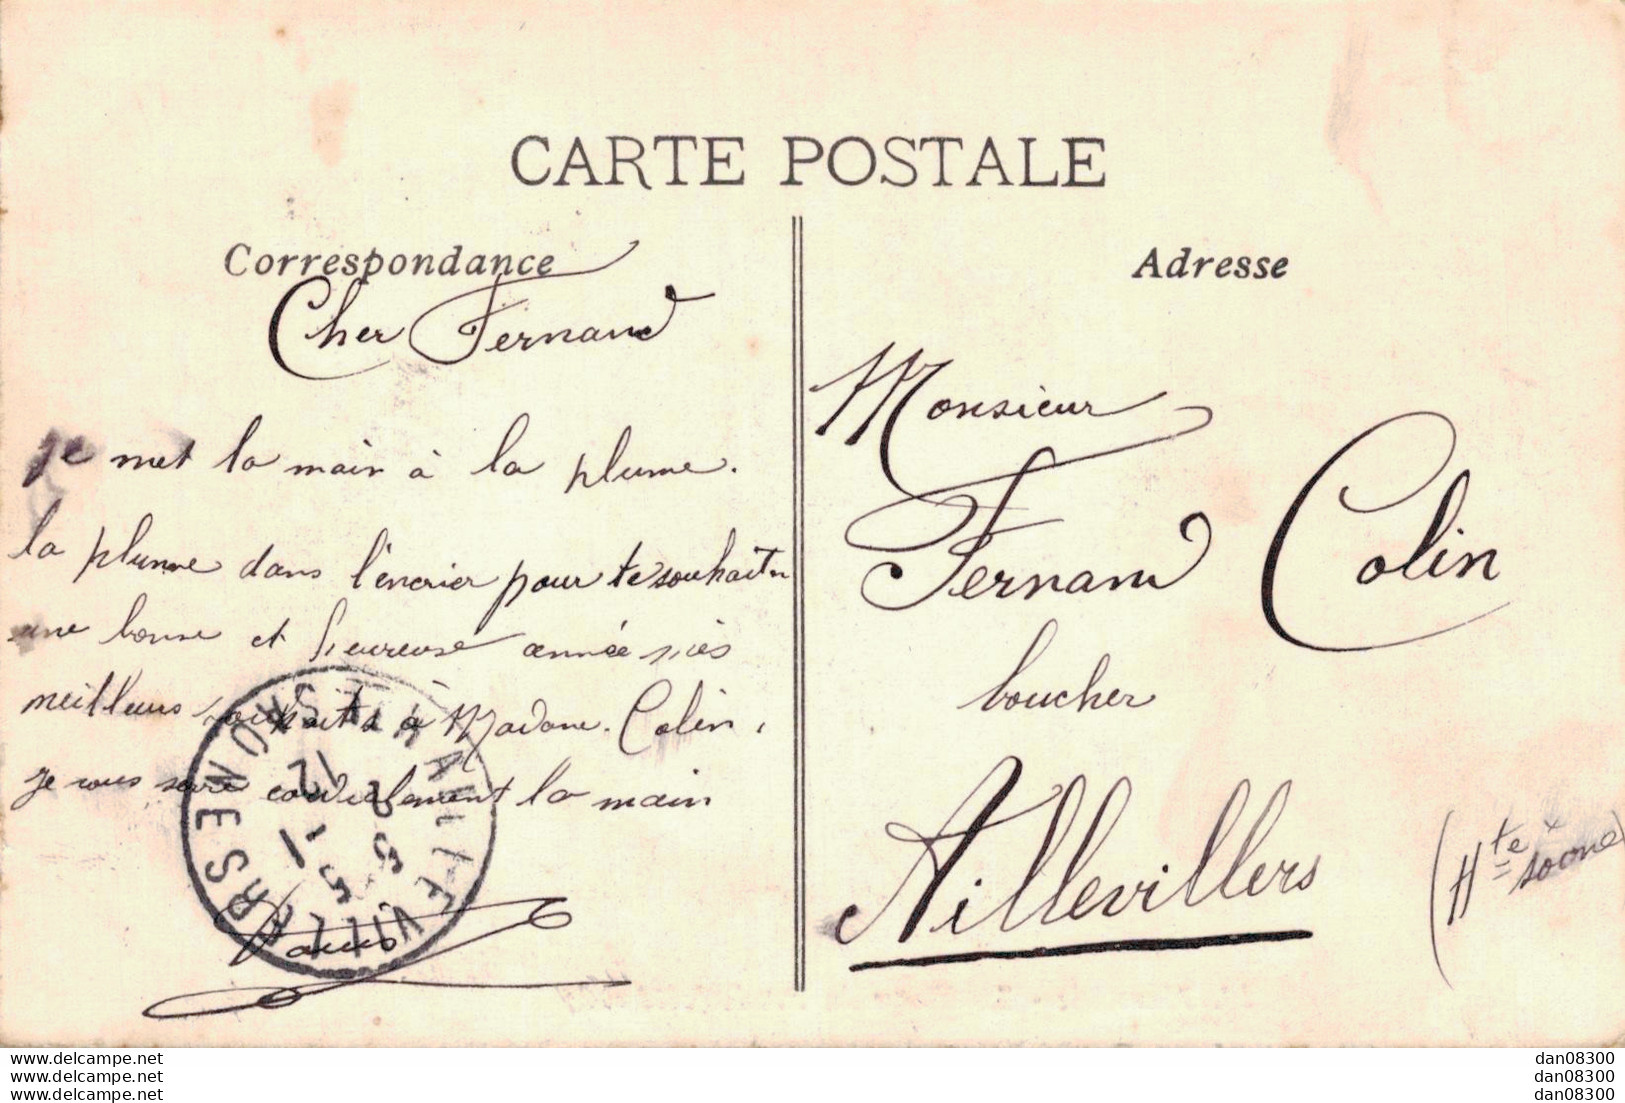 CARTE POSTALE
Correspondance
Cher Fernand
je met la main à la plume.
la plume dans l'encrier pour te souhaiter
une bonne et heureuse année mes
meilleurs souhaits à Madame. Colin,
je vous serre cordialement la main
Adresse
Monsieur
Fernand Colin
boucher
Aillevillers
(Hte Saone)
www.delcampe.net
www.delcampe.net
www.delcampe.net
dan08300
dan08300
dan08300